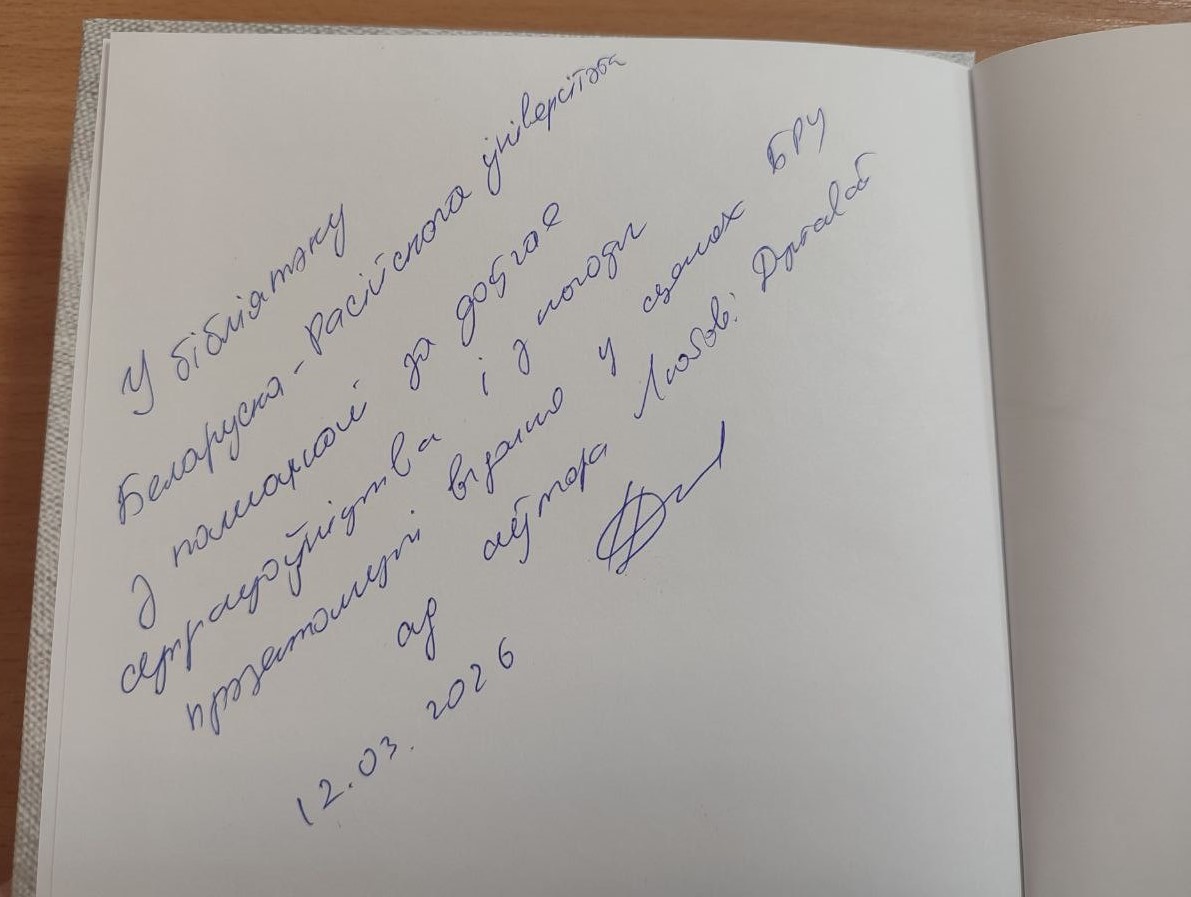 У бібліятэку
Беларуска-Расійскага ўніверсітэта
з падзякай за доўгае
супрацоўніцтва і з нагоды
прэзентацыі выдання у сценах БРУ
ад аўтара Любові
12.03.2026